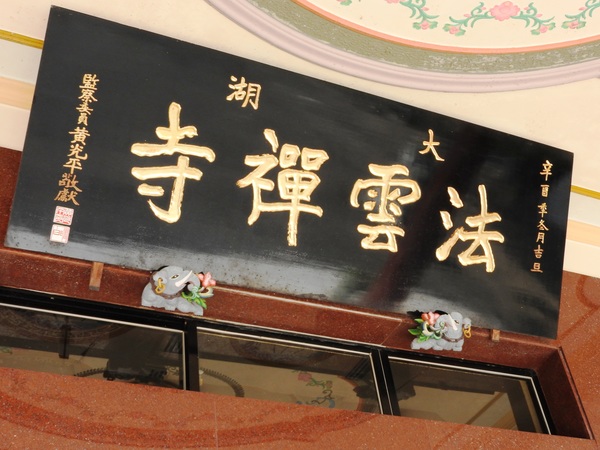 辛酉年冬月吉旦
大湖
法雲禪寺
監察委員黃光平敬獻